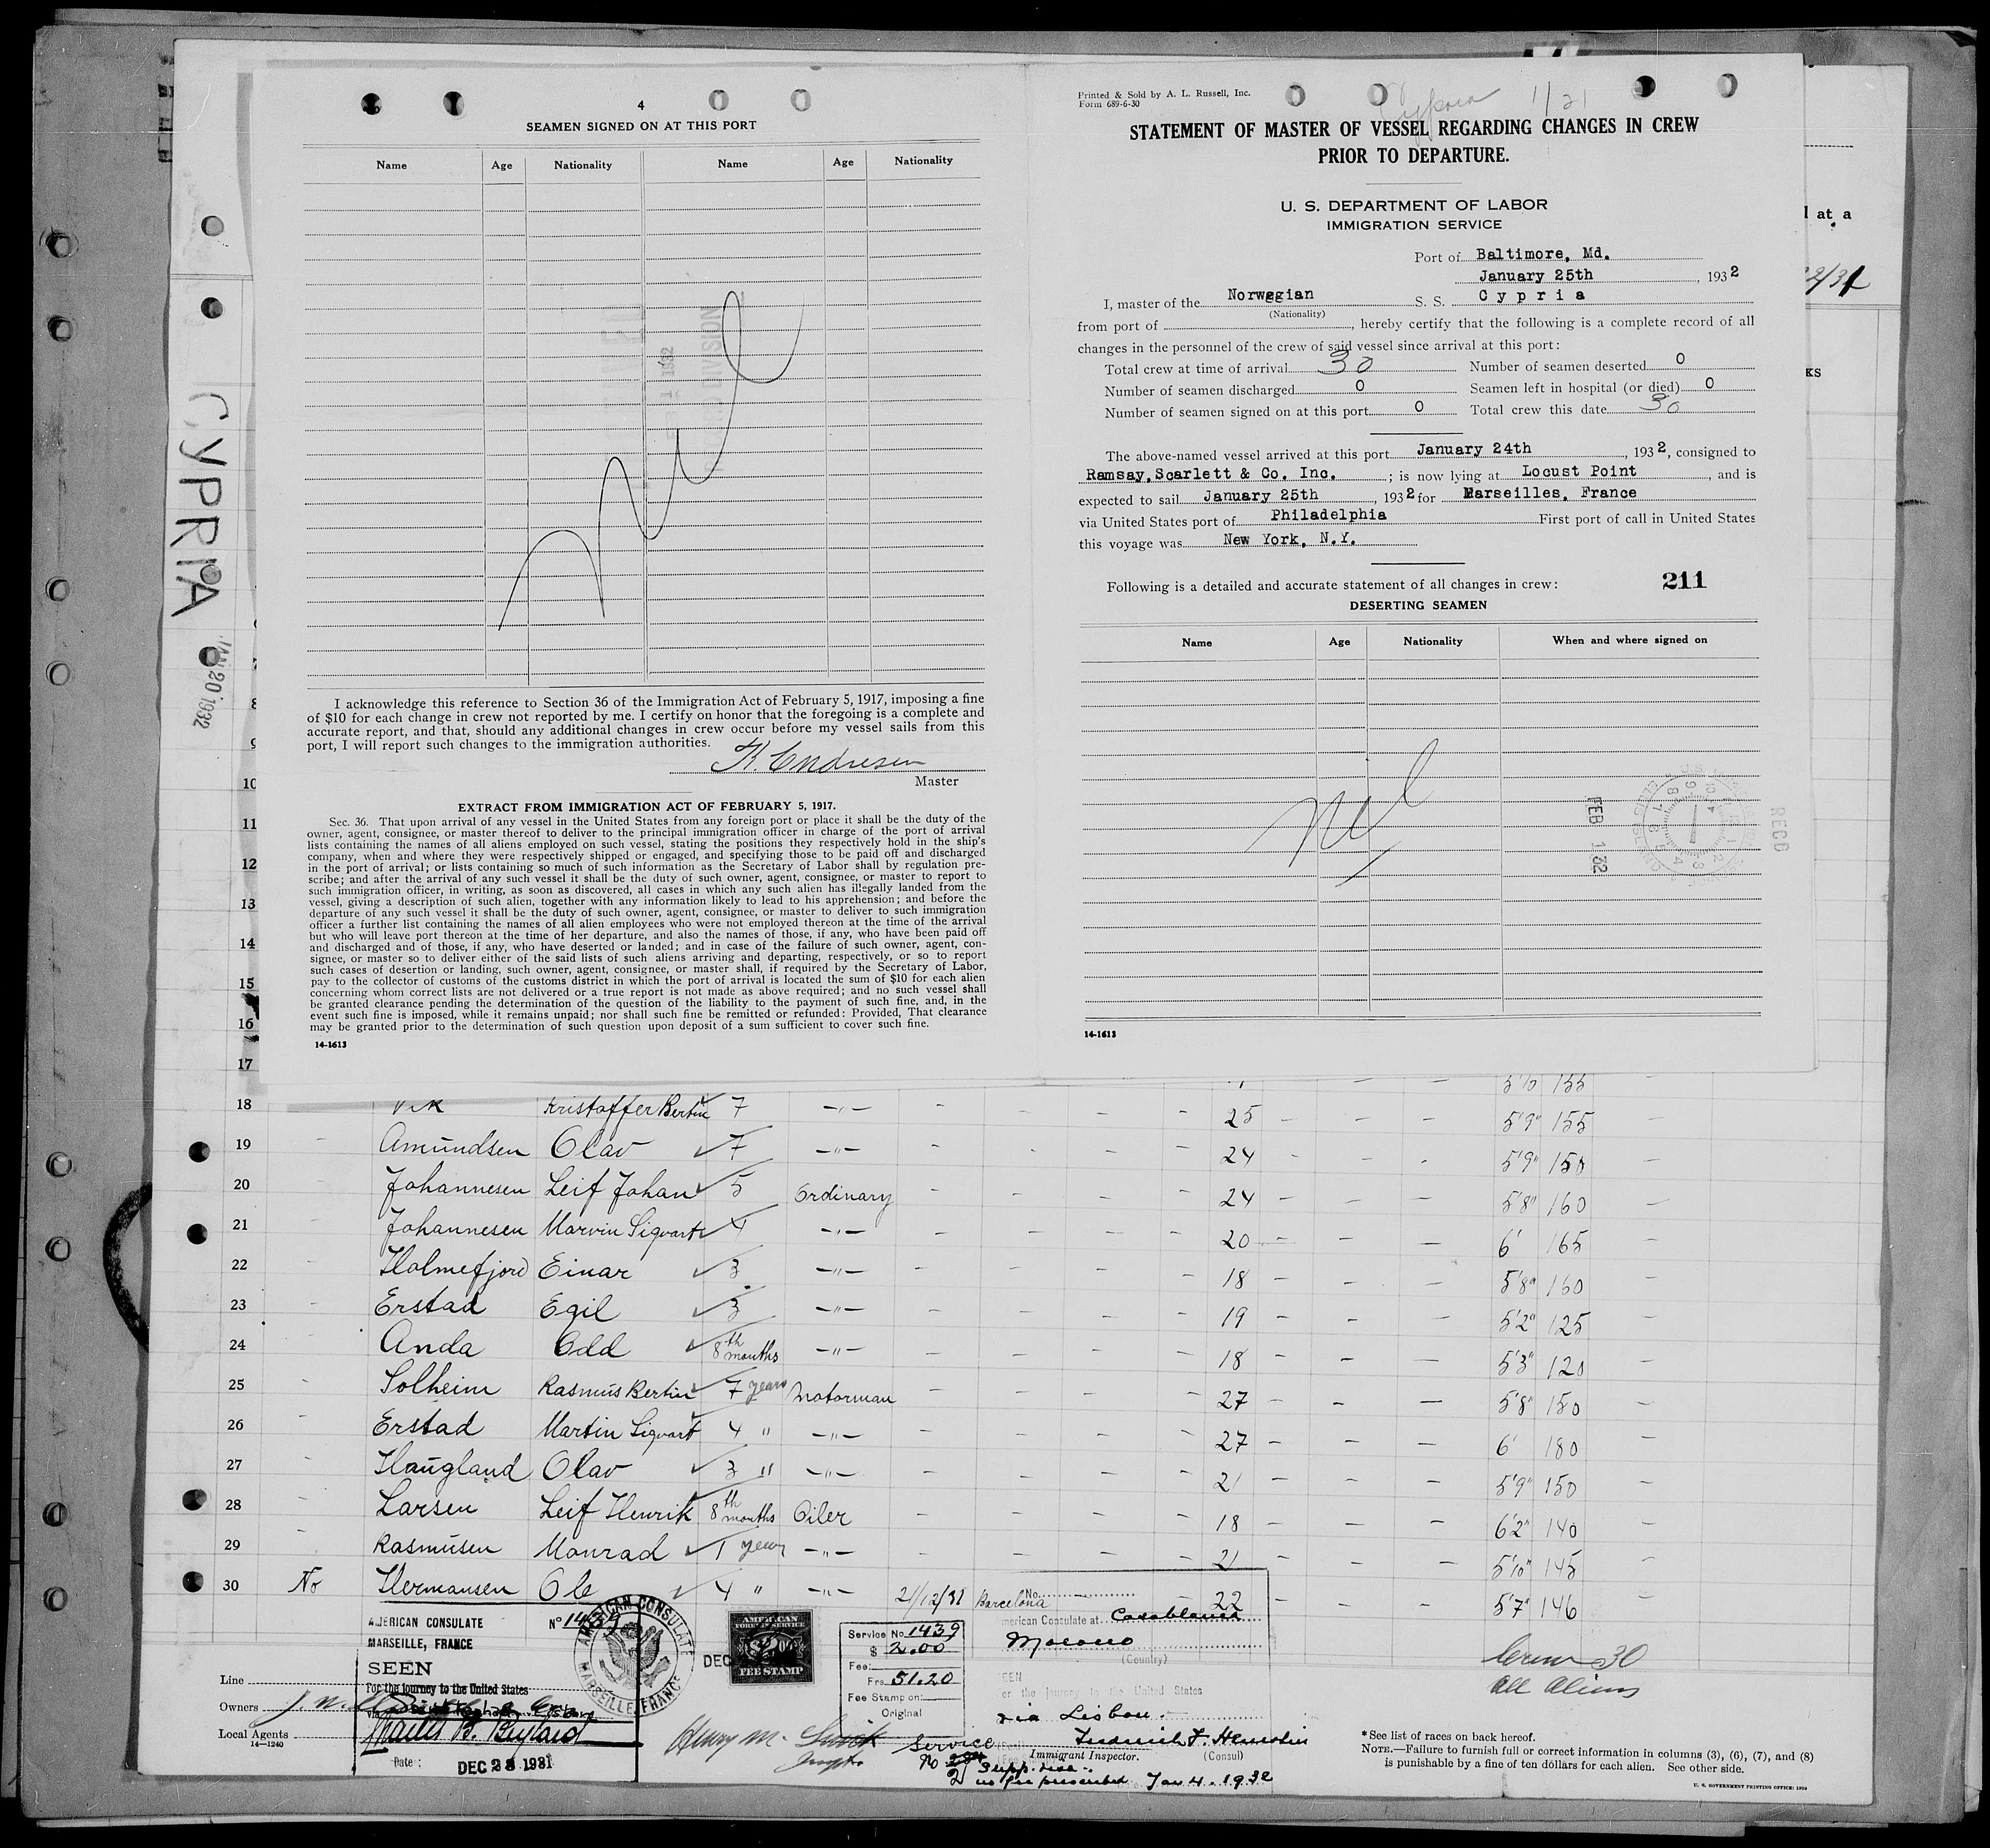 4
SEAMEN SIGNED ON AT THIS PORT
Name Age Nationality Name Age Nationality
Nil
I acknowledge this reference to Section 36 of the Immigration Act of February 5, 1917, imposing a fine
of $10 for each change in crew not reported by me. I certify on honor that the foregoing is a complete and
accurate report, and that, should any additional changes in crew occur before my vessel sails from this
port, I will report such changes to the immigration authorities.
K. Endresen
Master
EXTRACT FROM IMMIGRATION ACT OF FEBRUARY 5, 1917.
Sec. 36. That upon arrival of any vessel in the United States from any foreign port or place it shall be the duty of the
owner, agent, consignee, or master thereof to deliver to the principal immigration officer in charge of the port of arrival
lists containing the names of all aliens employed on such vessel, stating the positions they respectively hold in the ship's
company, when and where they were respectively shipped or engaged, and specifying those to be paid off and discharged
in the port of arrival; or lists containing so much of such information as the Secretary of Labor shall by regulation pre-
scribe; and after the arrival of any such vessel it shall be the duty of such owner, agent, consignee, or master to report to
such immigration officer, in writing, as soon as discovered, all cases in which any such alien has illegally landed from the
vessel, giving a description of such alien, together with any information likely to lead to his apprehension; and before the
departure of any such vessel it shall be the duty of such owner, agent, consignee, or master to deliver to such immigration
officer a further list containing the names of all alien employees who were not employed thereon at the time of the arrival
but who will leave port thereon at the time of her departure, and also the names of those, if any, who have been paid off
and discharged and of those, if any, who have deserted or landed; and in case of the failure of such owner, agent, con-
signee, or master so to deliver either of the said lists of such aliens arriving and departing, respectively, or so to report
such cases of desertion or landing, such owner, agent, consignee, or master shall, if required by the Secretary of Labor,
pay to the collector of customs of the customs district in which the port of arrival is located the sum of $10 for each alien
concerning whom correct lists are not delivered or a true report is not made as above required; and no such vessel shall
be granted clearance pending the determination of the question of the liability to the payment of such fine, and, in the
event such fine is imposed, while it remains unpaid; nor shall such fine be remitted or refunded: Provided, That clearance
may be granted prior to the determination of such question upon deposit of a sum sufficient to cover such fine.
14-1613
Printed & Sold by A. L. Russell, Inc.
Form 689-6-30
Cypria 1/21
STATEMENT OF MASTER OF VESSEL REGARDING CHANGES IN CREW
PRIOR TO DEPARTURE.
U. S. DEPARTMENT OF LABOR
IMMIGRATION SERVICE
Port of Baltimore, Md.
January 25th, 1932
I, master of the Norwegian S. S. Cypria
(Nationality)
from port of , hereby certify that the following is a complete record of all
changes in the personnel of the crew of said vessel since arrival at this port:
Total crew at time of arrival 30 Number of seamen deserted 0
Number of seamen discharged 0 Seamen left in hospital (or died) 0
Number of seamen signed on at this port 0 Total crew this date 30
The above-named vessel arrived at this port January 24th, 1932, consigned to
Ramsay, Scarlett & Co. Inc. ; is now lying at Locust Point, and is
expected to sail January 25th, 1932 for Marseilles, France
via United States port of Philadelphia First port of call in United States
this voyage was New York, N.Y.
Following is a detailed and accurate statement of all changes in crew: 211
DESERTING SEAMEN
Name Age Nationality When and where signed on
Nil
FEB 1 32
RECD
14-1613
CYPRIA
JAN 20 1932
l at a
KS
8
9
10
11
12
13
14
15
16
17 5'10 155
18 Vik Kristoffer Bertin 7 -"- 25 5'9" 155
19 Amundsen Olav 7 -"- 24 5'9" 150
20 Johannesen Leif Johan 5 Ordinary 24 5'8" 160
21 Johannesen Marvin Sigvart 4 -"- 20 6' 165
22 Holmefjord Einar 3 -"- 18 5'8" 160
23 Erstad Egil 3 -"- 19 5'2" 125
24 Anda Odd 8th months -"- 18 5'3" 120
25 Solheim Rasmus Bertin 7 years Motorman 27 5'8" 150
26 Erstad Martin Sigvart 4 " -"- 27 6' 180
27 Haugland Olav 3 " -"- 21 5'9" 150
28 Larsen Leif Henrik 8th months Oiler 18 6'2" 140
29 Rasmusen Monrad 1 year -"- 21 5'10" 145
30 No Hermansen Ole 4 " -"- 21/12/31 Barcelona 22 5'7" 146
AMERICAN CONSULATE
MARSEILLE, FRANCE
No 1439
SEEN
For the journey to the United States
DEC 28 1931
Date:
AMERICAN CONSULATE MARSEILLE, FRANCE
DEC
AMERICAN FOREIGN SERVICE
FEE STAMP
Service No. 1439
$ 2.00
Fee:
Frs. 51.20
Fee Stamp on:
Original
No.
merican Consulate at Casablanca
Morocco
(Country)
EEN
or the journey to the United States
via Lisbon.
(Consul)
Immigrant Inspector.
Service
No
Supp. visa.
no fee prescribed Jan 4. 1932
Henry M.
Line
Owners
Local Agents
14—1240
Crew 30
All Aliens
*See list of races on back hereof.
NOTE.—Failure to furnish full or correct information in columns (3), (6), (7), and (8)
is punishable by a fine of ten dollars for each alien. See other side.
U. S. GOVERNMENT PRINTING OFFICE: 1929